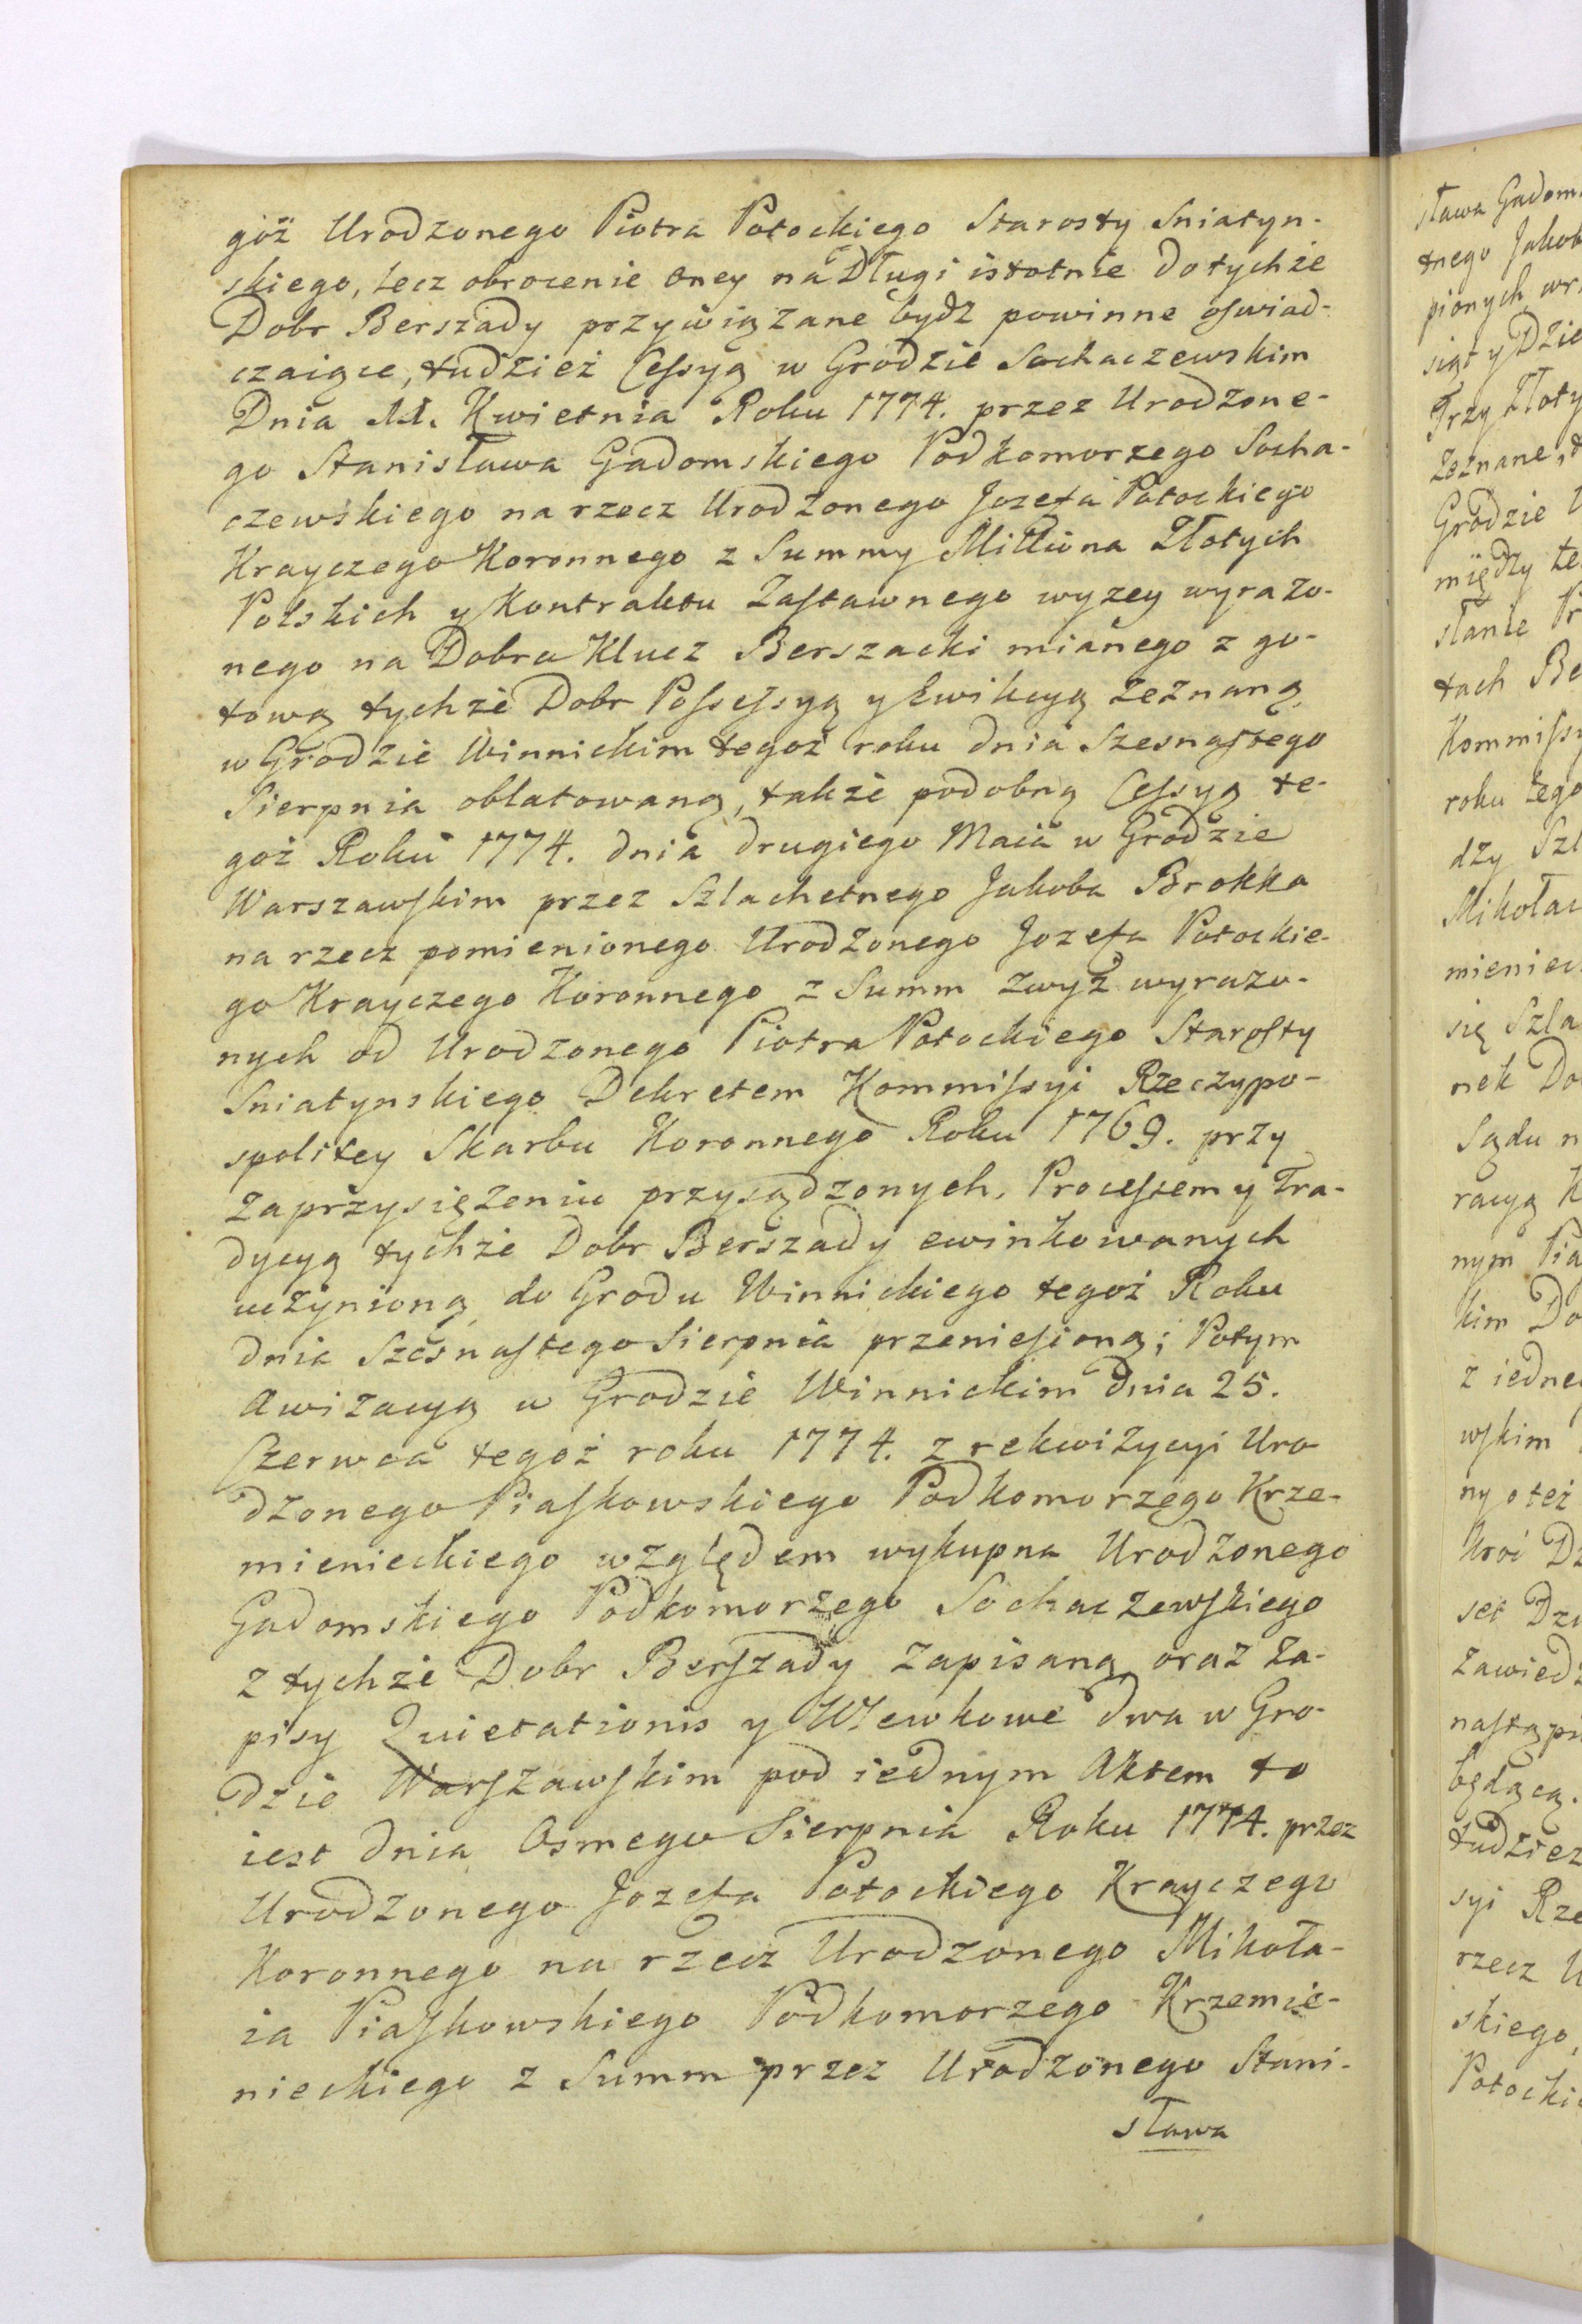 goż Urodzonego Piotra Potockiego Starosty Sniatyn-
skiego, lecz obrocenie oney na Długi istotnie do tychże
Dobr Berszady przywiązane bydz powinne oswiad-
czaiące, tudzież Cessyą w Grodzie Sochaczewskim
Dnia 11. Kwietnia Roku 1774. przez Urodzone-
go Stanisława Gadomskiego Podkomorzego Socha-
czewskiego na rzecz Urodzonego Jozefa Potockiego
Krayczego Koronnego z Summy Milliona Złotych
Polskich y Kontraktu Zastawnego wyzey wyrazo-
nego na Dobra Klucz Berszacki mianego z go-
tową tychże Dobr Possessyą y Ewikcyą zeznaną
w Grodzie Winnickim tegoż roku dnia Szesnastego
Sierpnia oblatowaną, także podobną Cessyą te-
goż Roku 1774. dnia drugiego Maia w Grodzie
Warszawskim przez Szlachetnego Jakoba Brokka
na rzecz pomienionego Urodzonego Jozefa Potockie-
go Krayczego Koronnego z Summ zwyż wyrazo-
nych od Urodzonego Piotra Potockiego Starosty
Sniatynskiego Dekretem Kommissyi Rzeczypo-
spolitey Skarbu Koronnego Roku 1769. przy
zaprzysiężeniu przysądzonych, Processem y Tra-
dycyą tychże Dobr Berszady ewinkowanych
uczynioną, do Grodu Winnickiego tegoż Roku
dnia Szesnastego Sierpnia przeniesioną; Potym
Awizacyą w Grodzie Winnickim dnia 25.
Czerwca tegoż roku 1774. z rekwizycyi Uro-
dzonego Piaskowskiego Podkomorzego Krze-
mienieckiego względem wykupna Urodzonego
Gadomskiego Podkomorzego Sochaczewskiego
z tychże Dobr Berszady zapisaną, oraz Za-
pisy Quietationis y Wlewkowe dwa w Gro-
dzie Warszawskim pod iednym Aktem to
iest dnia Osmego Sierpnia Roku 1774. przez
Urodzonego Jozefa Potockiego Krayczego
Koronnego na rzecz Urodzonego Mikoła-
ia Piaskowskiego Podkomorzego Krzemie-
nieckiego z Summ przez Urodzonego Stani-
sława
sława Gadom
tnego Jakob
pionych
siąt y Dzie
Trzy Złoty
Zeznane,
Grodzie
między
tach Be
Kommissy
roku tego
dzy Szl
Mikołai
mieniec
się Szla
nek Do
Sądu n
racyą K
nym Pia
kim Do
z iedne
wskim
ny o też
set
Zawied
nastąpi
będącą.
tudziez
syi Rze
rzecz U
skiego,
Potocki